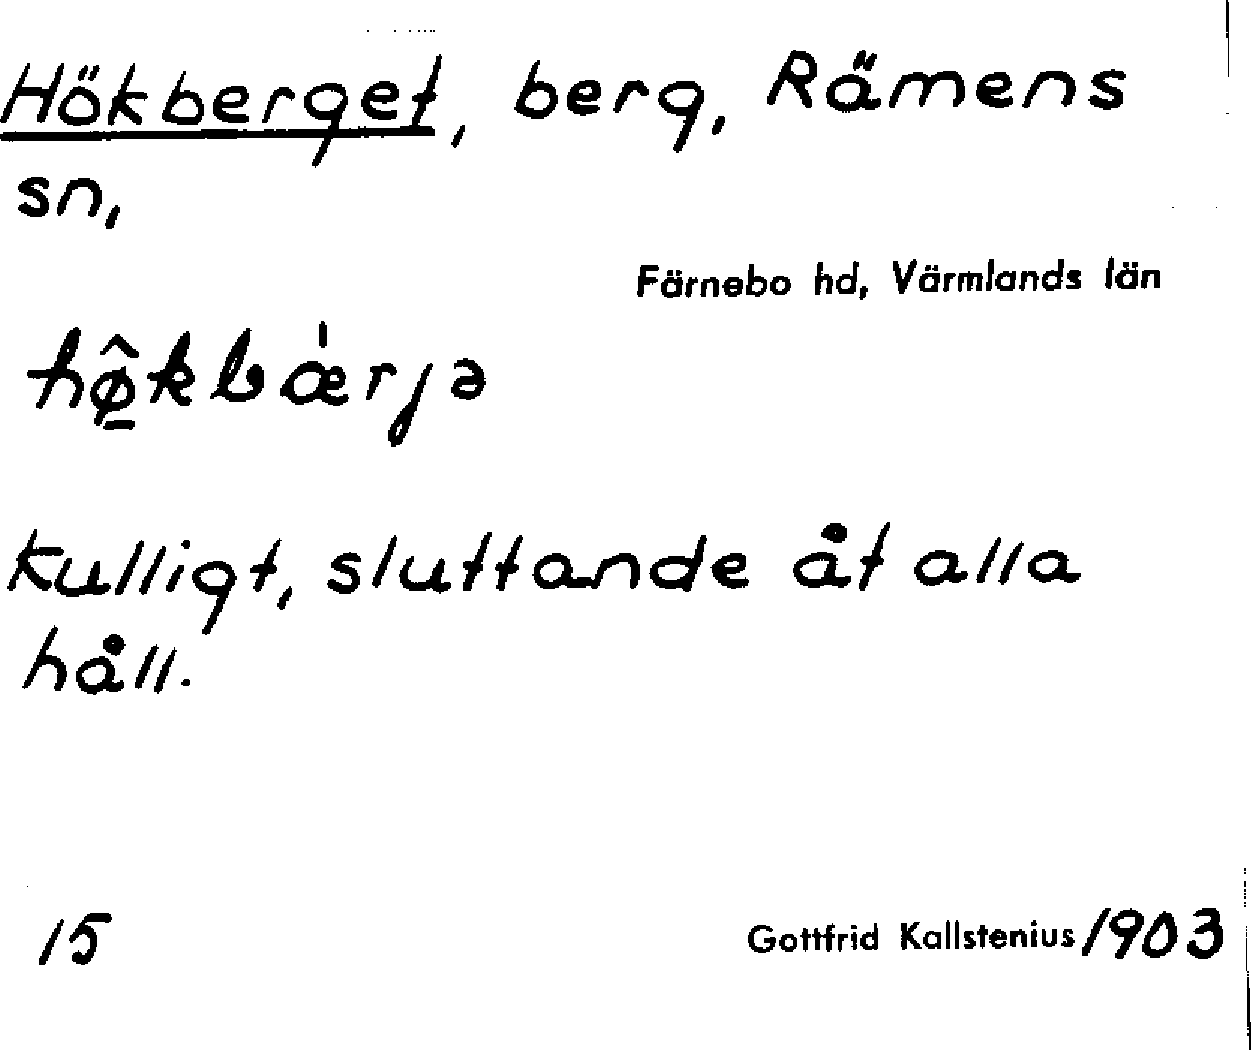 Hökberget, berg, Rämens
sn,
Färnebo hd, Värmlands län
hø̂kbæ̀rjə
Kulligt, sluttande åt alla
håll.
15
Gottfrid Kallstenius 1903